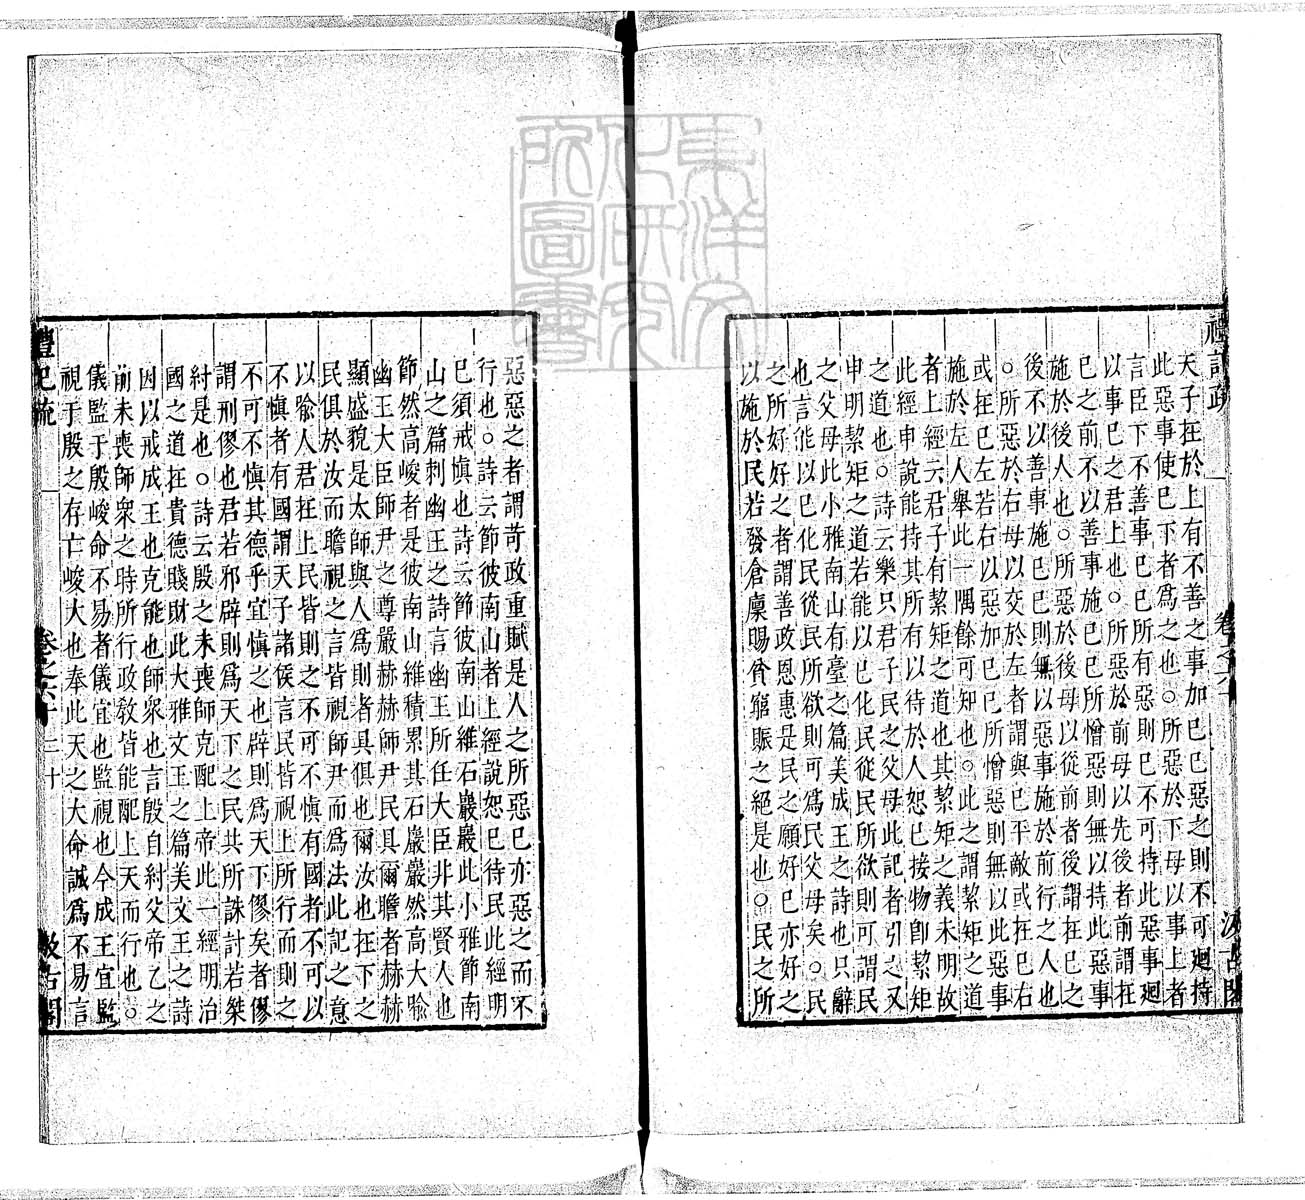 禮記疏
卷之六十
汲古閣
天子在於上有不善之事加已已惡之則不可廻持
此惡事使已下者為之也○所惡於下毋以事上者
言臣下不善事已已所有惡則已不可持此惡事廻
以事已之君上也○所惡於前毋以先後者前謂在
已之前不以善事施已已所憎惡則無以持此惡事
施於後人也○所惡於後毋以從前者後謂在已之
後不以善事施已已則無以惡事施於前行之人也
○所惡於右毋以交於左者謂與已平敵或在已右
或在已左若右以惡加已已所憎惡則無以此惡事
施於左人舉此一隅餘可知也○此之謂絜矩之道
者上經云君子有絜矩之道也其絜矩之義未明故
此經申說能持其所有以待於人恕已接物卽絜矩
之道也○詩云樂只君子民之父母此記者引之又
申明絜矩之道若能以已化民從民所欲則可謂民
之父母此小雅南山有臺之篇美成王之詩也只辭
也言能以已化民從民所欲則可為民父母矣○民
之所好好之者謂善政恩惠是民之願好已亦好之
以施於民若發倉廩賜貧窮賑之絕是也○民之所
惡惡之者謂苛政重賦是人之所惡已亦惡之而不
行也○詩云節彼南山者上經說恕已待民此經明
已須戒慎也詩云節彼南山維石巖巖此小雅節南
山之篇刺幽王之詩言幽王所任大臣非其賢人也
節然高峻者是彼南山維積累其石巖巖然高大喻
幽王大臣師尹之尊嚴赫赫師尹民具爾瞻者赫赫
顯盛貌是太師與人為則者具俱也爾汝也在下之
民俱於汝而瞻視之言皆視師尹而為法此記之意
以喻人君在上民皆則之不可不慎有國者不可以
不慎者有國謂天子諸侯言民皆視上所行而則之
不可不慎其德乎宜慎之也辟則為天下僇矣者僇
謂刑僇也君若邪辟則為天下之民共所誅討若桀
紂是也○詩云殷之未喪師克配上帝此一經明治
國之道在貴德賤財此大雅文王之篇美文王之詩
因以戒成王也克能也師眾也言殷自紂父帝乙之
前未喪師眾之時所行政教皆能配上天而行也○
儀監于殷峻命不易者儀宜也監視也今成王宜監
視于殷之存亡峻大也奉此天之大命誠為不易言
禮記疏
卷之六十
二十
汲古閣